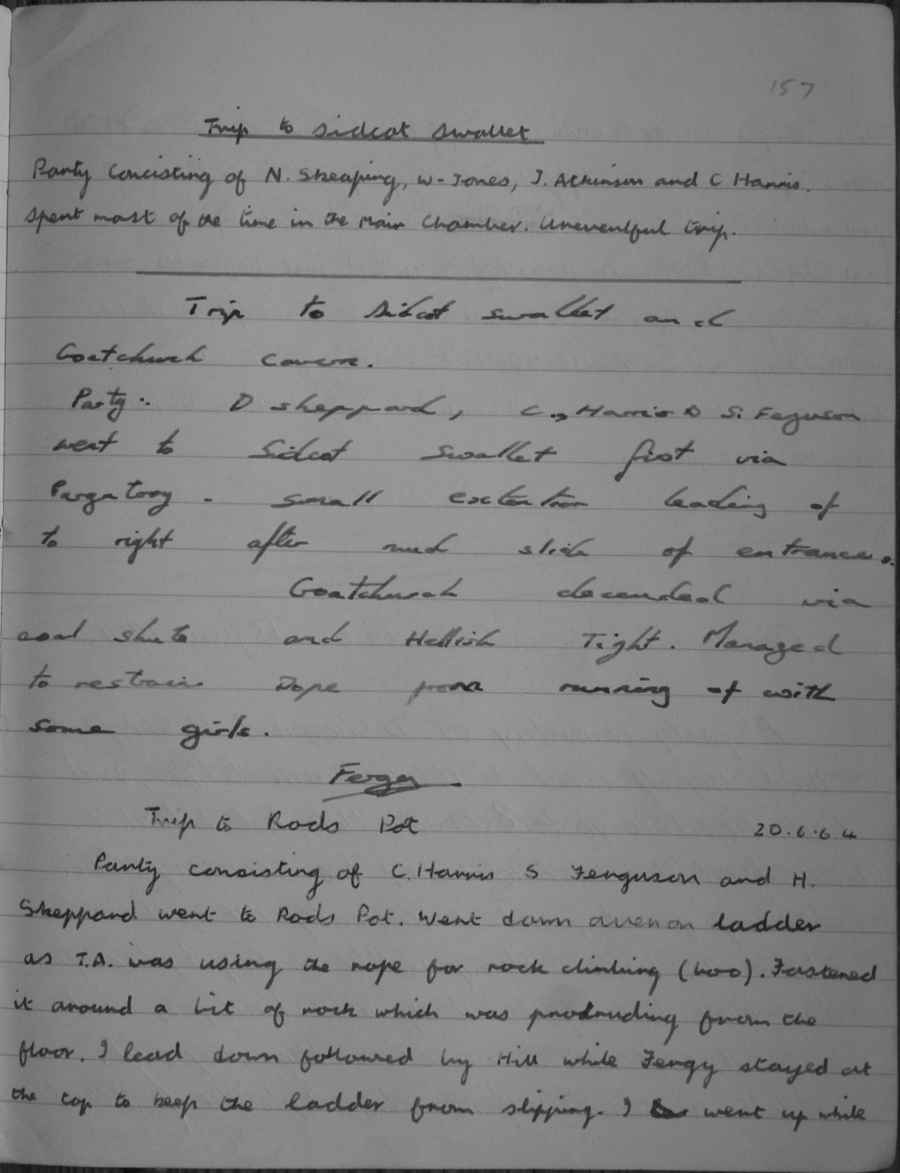 157
Trip to Sidcot Swallet
Party Concisting of N. Sheaping, W. Jones, J. Atkinson and C Harris.
Spent most of the time in the Main Chamber. Uneventful trip.
Trip to Sidcot swallet and
Goatchurch cavern.
Party:. D sheppard, C. Harris & S. Ferguson
went to Sidcot swallet first via
Purgatory. small extention leading of
to right after mud slide of entrance.
Goatchurch decended via
coal shute and Hellish Tight. Managed
to restrain Dope from running of with
some girls.
Fergy
Trip to Rods Pot 20.6.64
Party concisting of C. Harris S Ferguson and H.
Sheppard went to Rods Pot. Went down aven on ladder
as T.A. was using the rope for rock climbing (boo). Fastened
it around a bit of rock which was protruding from the
floor. I lead down followed by Hill while Fergy stayed at
the top to keep the ladder from slipping. I went up while